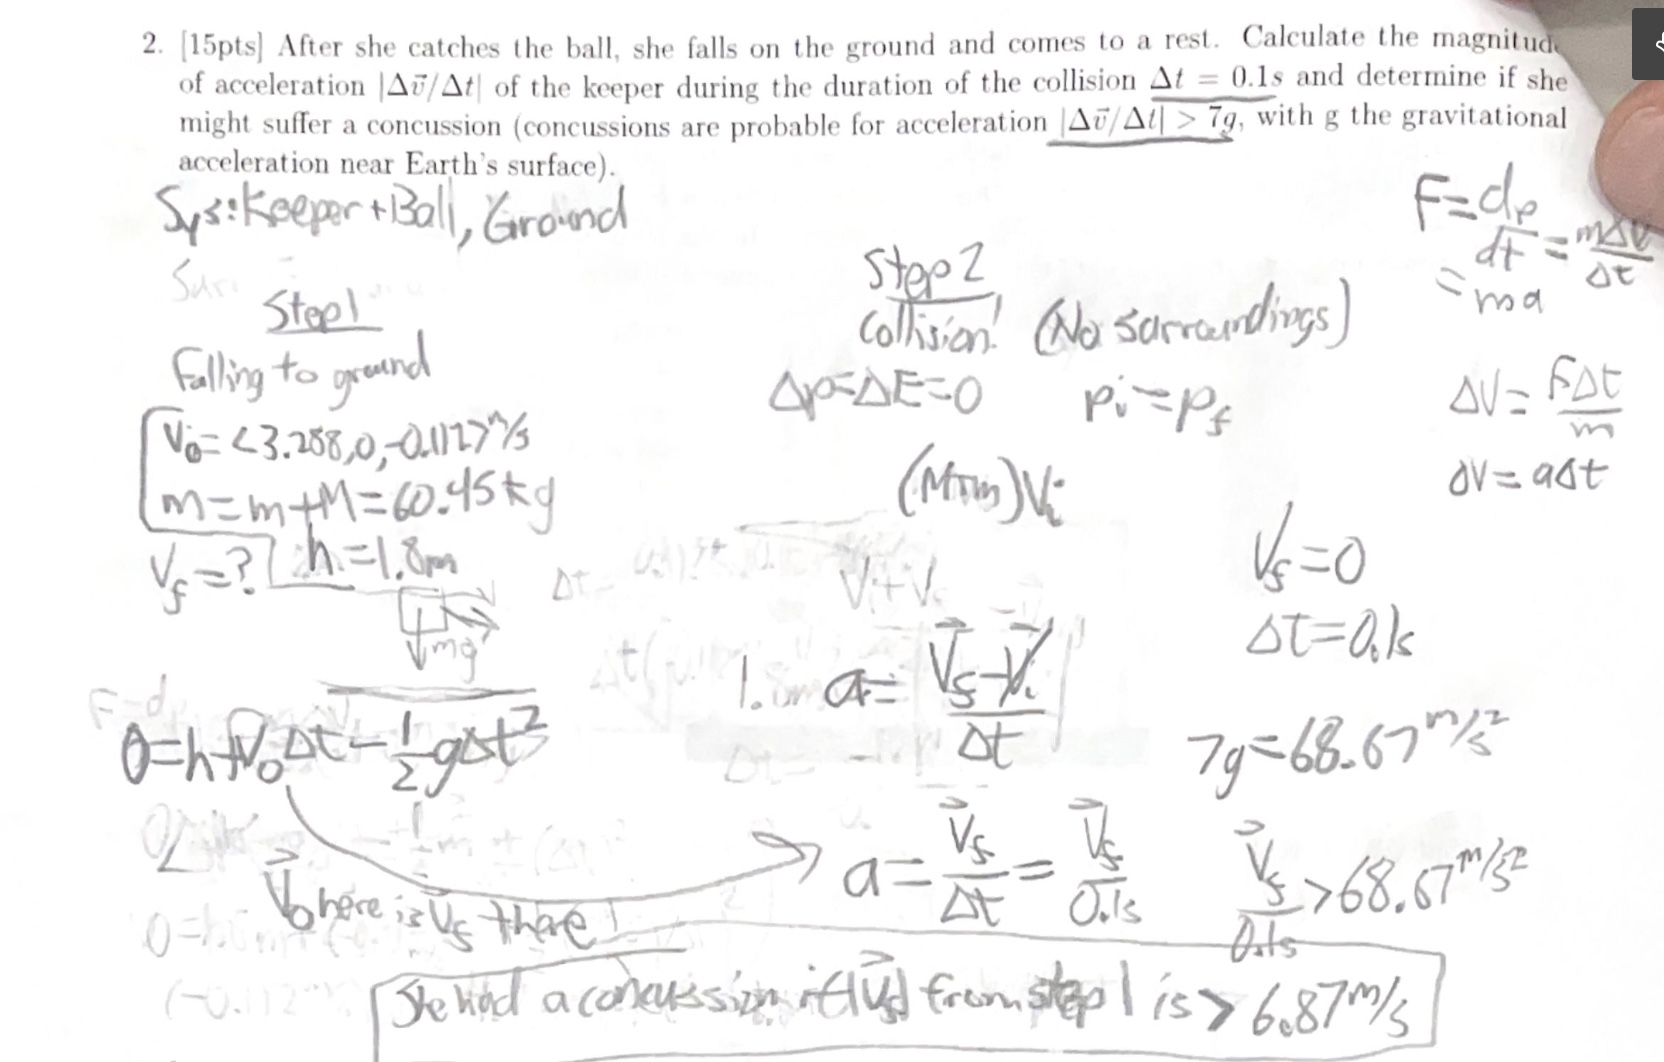 2. [15pts] After she catches the ball, she falls on the ground and comes to a rest. Calculate the magnitud
of acceleration |Δv⃗/Δt| of the keeper during the duration of the collision Δt = 0.1s and determine if she
might suffer a concussion (concussions are probable for acceleration |Δv⃗/Δt| > 7g, with g the gravitational
acceleration near Earth's surface).
Sys: Keeper + Ball, Ground
Sur.
Step 1
Falling to ground
V₀ = <3.288, 0, -0.112> m/s
m = m + M = 60.45 kg
V_f = ? h = 1.8m
mg
0 = h + V₀Δt - 1/2 gΔt²
V⃗₀ here is V⃗_f there!
Step 2
Collision! (No Sarroundings)
Δp = ΔE = 0 pᵢ = p_f
(M+m)Vᵢ
a = (V⃗_f - V⃗ᵢ)/Δt
a = V⃗_f/Δt = V⃗_f/0.1s
F = dp/dt = mΔV/Δt
= ma
ΔV = FΔt/m
ΔV = aΔt
V_f = 0
Δt = 0.1s
7g = 68.67 m/s²
V⃗_f/0.1s > 68.67 m/s²
She had a concussion if |V⃗_f| from step 1 is > 6.87 m/s